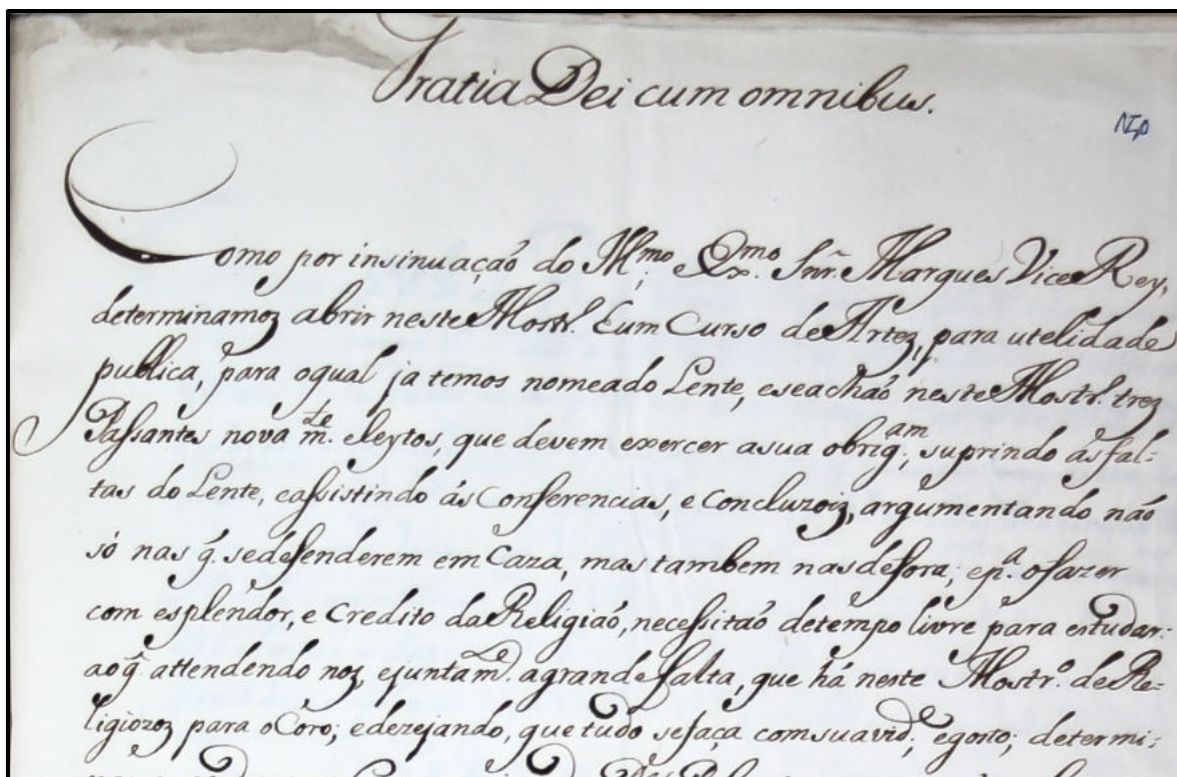 Gratia Dei cum omnibus.
Como por insinuação do Il.mo e Ex.mo Snr. Marques Vice Rey,
determinamoz abrir neste Mostr.o hum Curso de Artez, para utelidade
publica, para oqual ja temos nomeado Lente, eseachão neste Mostr.o trez
Passantes nova m.te eleytos, que devem exercer asua obrig.am, suprindo ás fal-
tas do Lente, eassistindo ás Conferencias, e Concluzoiz, argumentando não
só nas q̃. sedefenderem em Caza, mas tambem nas defora; ep.a ofazer
com esplendor, e Credito da Religião, necessitão detempo livre para estudar:
ao q̃ attendendo noz, ejuntam.te agrande falta, que há neste Mostr.o de Re-
ligiozoz para o Coro; edezejando, que tudo sefaça comsuavid.e, egosto; determi-